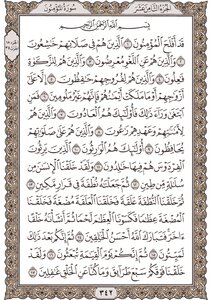 سورة المؤمنون
الجزء الثامن عشر
بِسْمِ ٱللَّهِ ٱلرَّحْمَٰنِ ٱلرَّحِيمِ
قَدْ أَفْلَحَ ٱلْمُؤْمِنُونَ ١ ٱلَّذِينَ هُمْ فِي صَلَاتِهِمْ خَٰشِعُونَ
٢ وَٱلَّذِينَ هُمْ عَنِ ٱللَّغْوِ مُعْرِضُونَ ٣ وَٱلَّذِينَ هُمْ لِلزَّكَوٰةِ
فَٰعِلُونَ ٤ وَٱلَّذِينَ هُمْ لِفُرُوجِهِمْ حَٰفِظُونَ ٥ إِلَّا عَلَىٰٓ
أَزْوَٰجِهِمْ أَوْ مَا مَلَكَتْ أَيْمَٰنُهُمْ فَإِنَّهُمْ غَيْرُ مَلُومِينَ ٦ فَمَنِ
ٱبْتَغَىٰ وَرَآءَ ذَٰلِكَ فَأُوْلَٰٓئِكَ هُمُ ٱلْعَادُونَ ٧ وَٱلَّذِينَ هُمْ
لِأَمَٰنَٰتِهِمْ وَعَهْدِهِمْ رَٰعُونَ ٨ وَٱلَّذِينَ هُمْ عَلَىٰ صَلَوَٰتِهِمْ
يُحَافِظُونَ ٩ أُوْلَٰٓئِكَ هُمُ ٱلْوَٰرِثُونَ ١٠ ٱلَّذِينَ يَرِثُونَ
ٱلْفِرْدَوْسَ هُمْ فِيهَا خَٰلِدُونَ ١١ وَلَقَدْ خَلَقْنَا ٱلْإِنسَٰنَ مِن
سُلَٰلَةٍ مِّن طِينٍ ١٢ ثُمَّ جَعَلْنَٰهُ نُطْفَةً فِي قَرَارٍ مَّكِينٍ ١٣
ثُمَّ خَلَقْنَا ٱلنُّطْفَةَ عَلَقَةً فَخَلَقْنَا ٱلْعَلَقَةَ مُضْغَةً فَخَلَقْنَا
ٱلْمُضْغَةَ عِظَٰمًا فَكَسَوْنَا ٱلْعِظَٰمَ لَحْمًا ثُمَّ أَنشَأْنَٰهُ خَلْقًا
ءَاخَرَ فَتَبَارَكَ ٱللَّهُ أَحْسَنُ ٱلْخَٰلِقِينَ ١٤ ثُمَّ إِنَّكُم بَعْدَ ذَٰلِكَ
لَمَيِّتُونَ ١٥ ثُمَّ إِنَّكُمْ يَوْمَ ٱلْقِيَٰمَةِ تُبْعَثُونَ ١٦ وَلَقَدْ
خَلَقْنَا فَوْقَكُمْ سَبْعَ طَرَآئِقَ وَمَا كُنَّا عَنِ ٱلْخَلْقِ غَٰفِلِينَ ١٧
٣٤٢